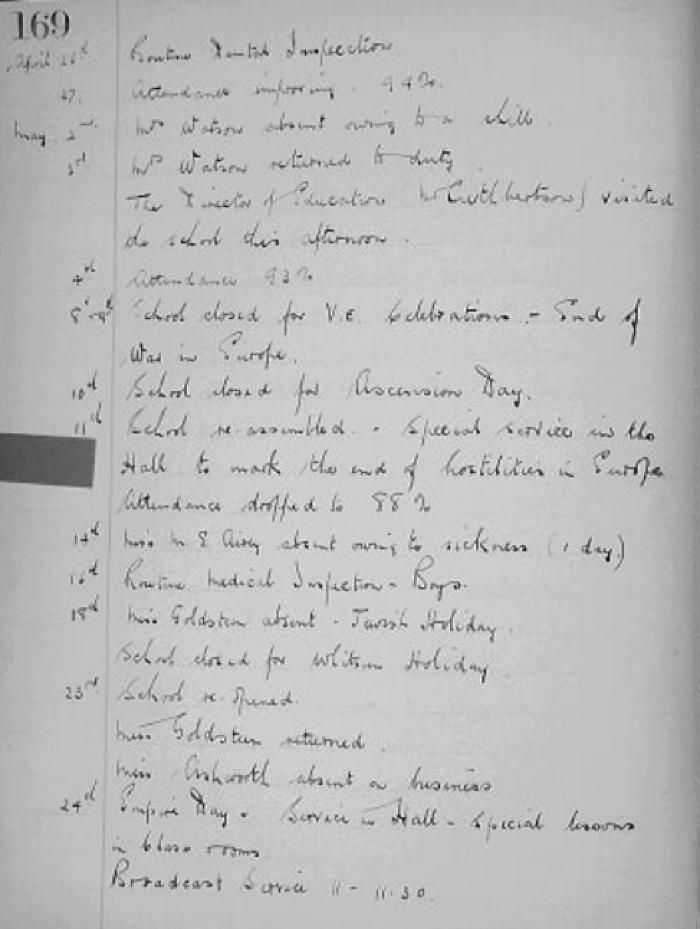 169
April 26th Routine Dental Inspection
27. Attendance improving. 94%.
May. 2nd. Mrs Watson absent owing to a chill.
3rd. Mrs Watson returned to duty
The Director of Education (Mr Cuthbertson) visited
the school this afternoon.
4th Attendance 93%
8th & 9th School closed for V.E. Celebrations - End of
War in Europe.
10th School closed for Ascension Day.
11th School re-assembled. - Special service in the
Hall to mark the end of hostilities in Europe
Attendance dropped to 88%
14th Miss M E Airey absent owing to sickness (1 day)
16th Routine Medical Inspection - Boys.
18th Miss Goldstein absent - Jewish Holiday.
School closed for Whitsun Holiday
23rd School re-opened.
Miss Goldstein returned.
Miss Ashworth absent on business
24th Empire Day - Service in Hall - Special lessons
in Class rooms
Broadcast Service 11 - 11.30.